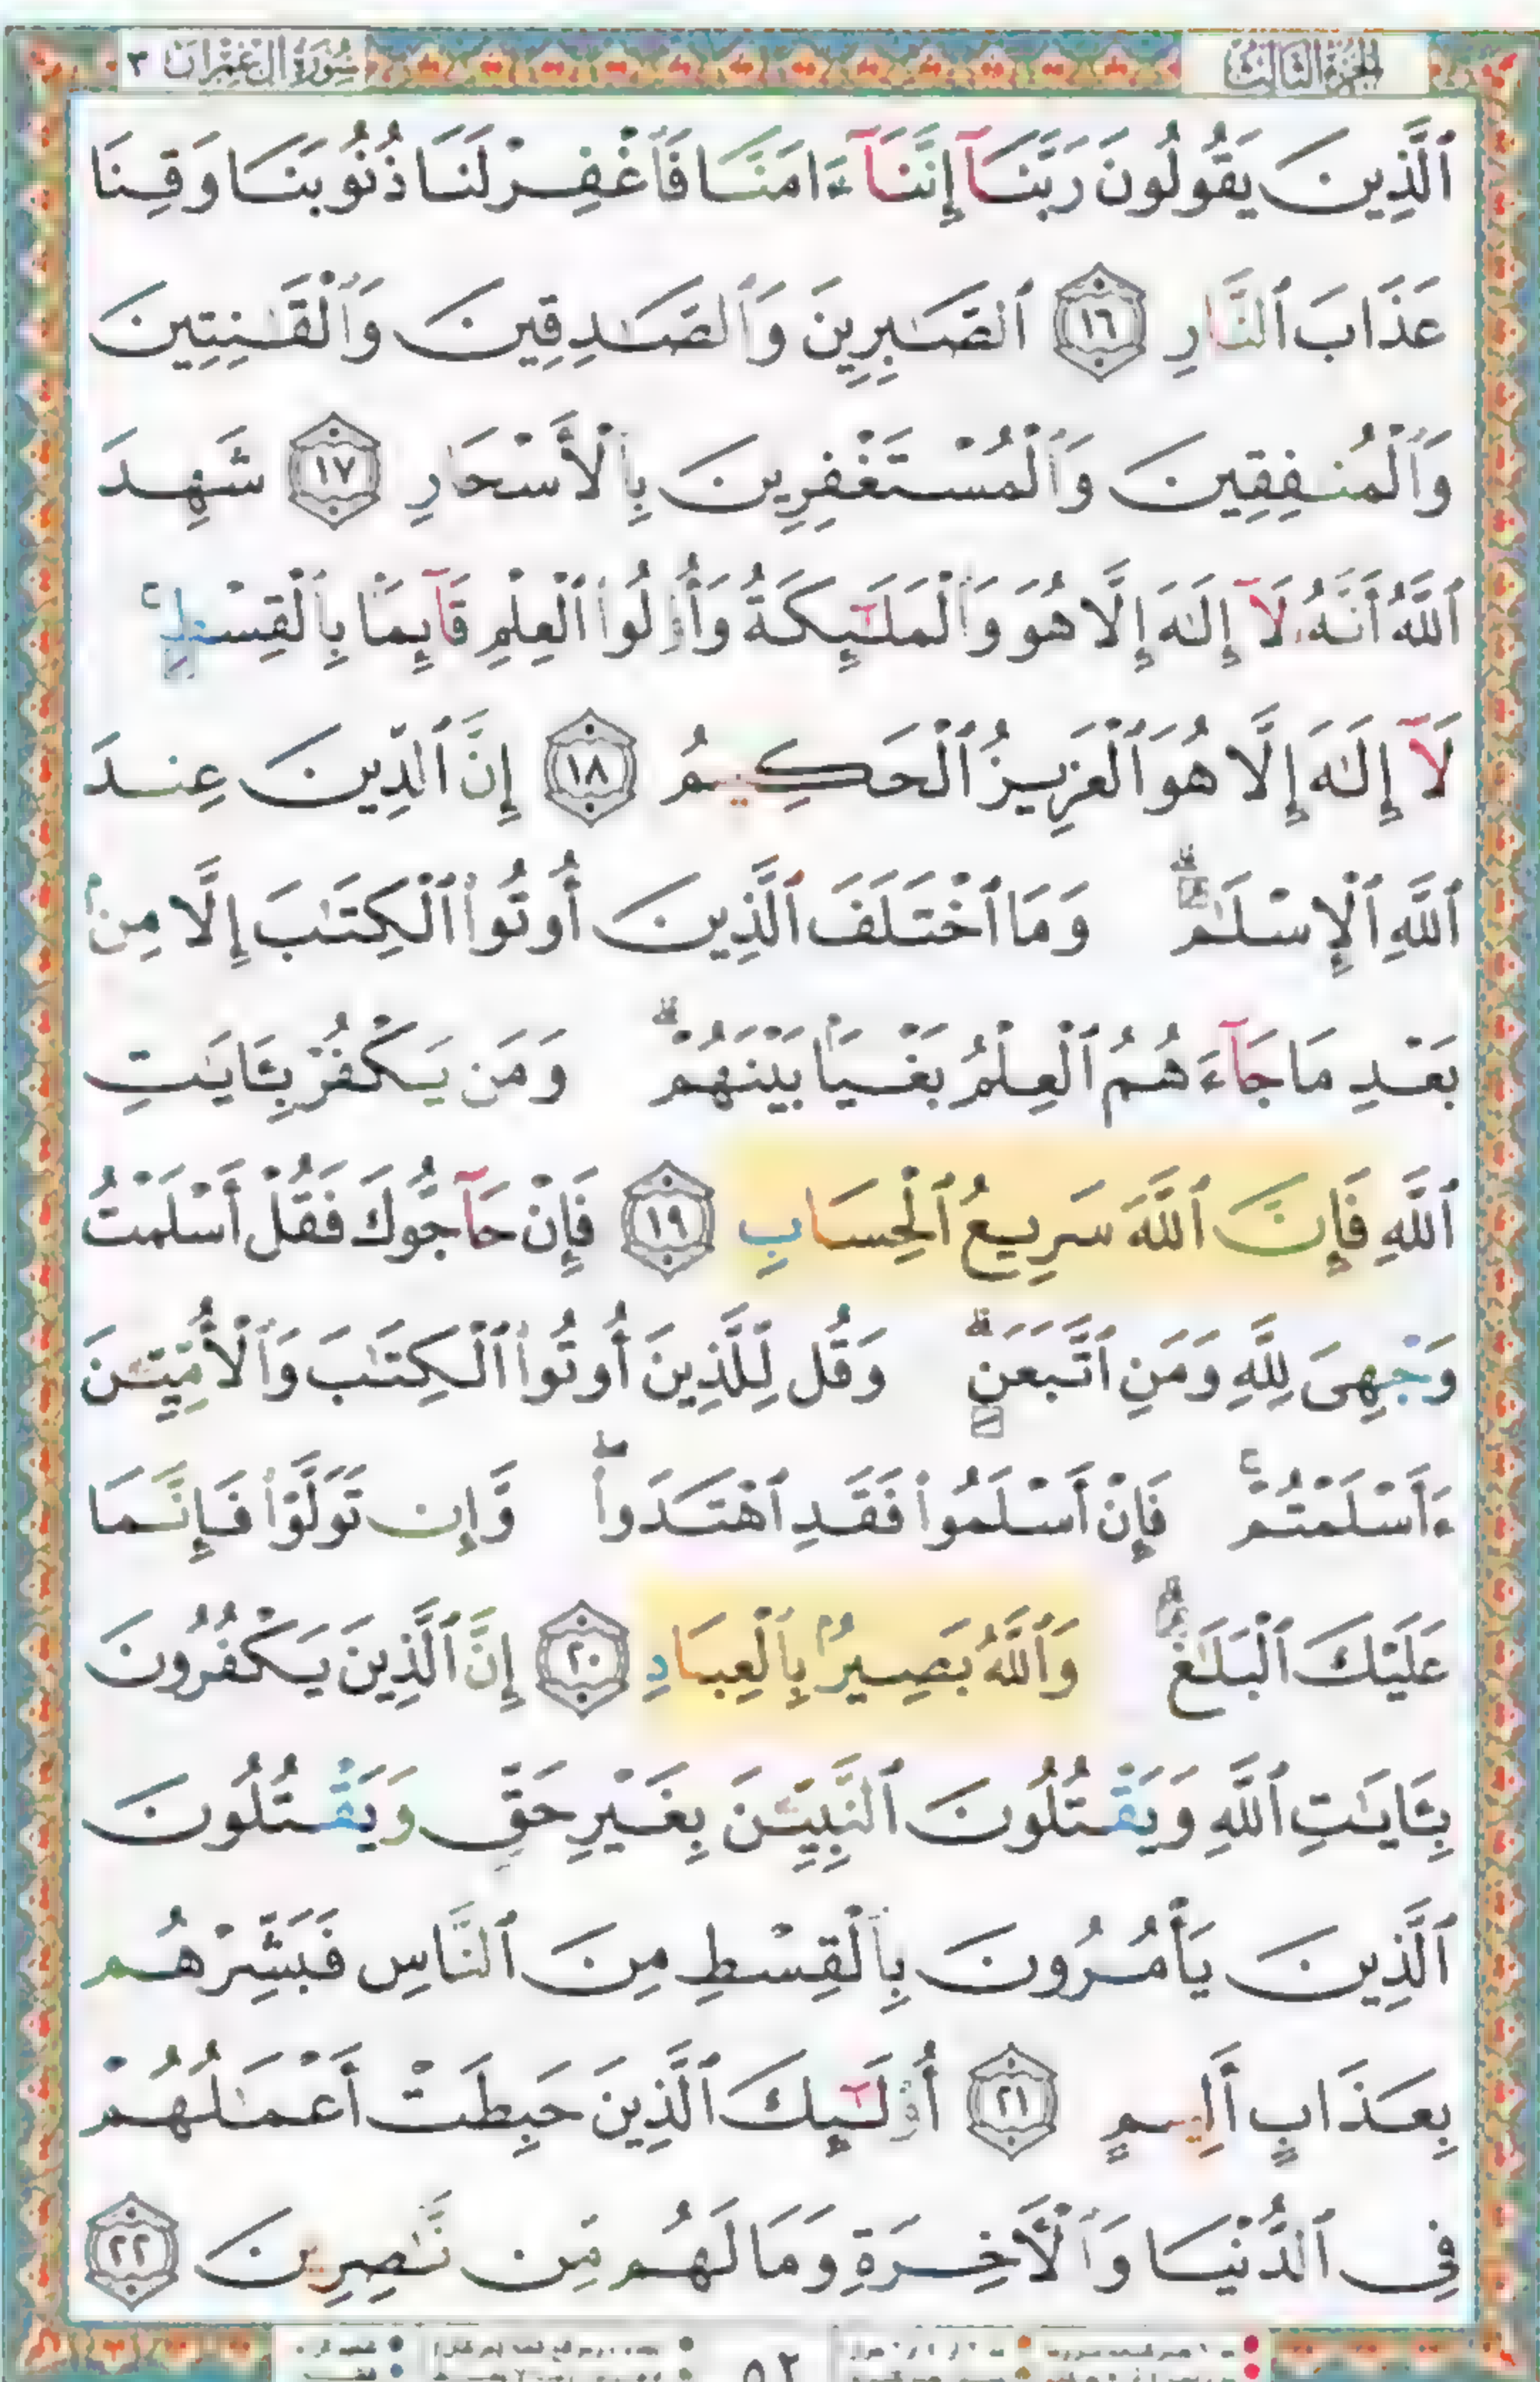 الجزء الثالث
سورة آل عمران ٣
ٱلَّذِينَ يَقُولُونَ رَبَّنَآ إِنَّنَآ ءَامَنَّا فَٱغْفِرْ لَنَا ذُنُوبَنَا وَقِنَا
عَذَابَ ٱلنَّارِ ١٦ ٱلصَّٰبِرِينَ وَٱلصَّٰدِقِينَ وَٱلْقَٰنِتِينَ
وَٱلْمُنفِقِينَ وَٱلْمُسْتَغْفِرِينَ بِٱلْأَسْحَارِ ١٧ شَهِدَ
ٱللَّهُ أَنَّهُۥ لَآ إِلَٰهَ إِلَّا هُوَ وَٱلْمَلَٰٓئِكَةُ وَأُو۟لُوا۟ ٱلْعِلْمِ قَآئِمًۢا بِٱلْقِسْطِ ۚ
لَآ إِلَٰهَ إِلَّا هُوَ ٱلْعَزِيزُ ٱلْحَكِيمُ ١٨ إِنَّ ٱلدِّينَ عِندَ
ٱللَّهِ ٱلْإِسْلَٰمُ ۗ وَمَا ٱخْتَلَفَ ٱلَّذِينَ أُوتُوا۟ ٱلْكِتَٰبَ إِلَّا مِنۢ
بَعْدِ مَا جَآءَهُمُ ٱلْعِلْمُ بَغْيًۢا بَيْنَهُمْ ۗ وَمَن يَكْفُرْ بِـَٔايَٰتِ
ٱللَّهِ فَإِنَّ ٱللَّهَ سَرِيعُ ٱلْحِسَابِ ١٩ فَإِنْ حَآجُّوكَ فَقُلْ أَسْلَمْتُ
وَجْهِىَ لِلَّهِ وَمَنِ ٱتَّبَعَنِ ۗ وَقُل لِّلَّذِينَ أُوتُوا۟ ٱلْكِتَٰبَ وَٱلْأُمِّيِّـۧنَ
ءَأَسْلَمْتُمْ ۚ فَإِنْ أَسْلَمُوا۟ فَقَدِ ٱهْتَدَوا۟ ۖ وَّإِن تَوَلَّوْا۟ فَإِنَّمَا
عَلَيْكَ ٱلْبَلَٰغُ ۗ وَٱللَّهُ بَصِيرٌۢ بِٱلْعِبَادِ ٢٠ إِنَّ ٱلَّذِينَ يَكْفُرُونَ
بِـَٔايَٰتِ ٱللَّهِ وَيَقْتُلُونَ ٱلنَّبِيِّـۧنَ بِغَيْرِ حَقٍّ وَيَقْتُلُونَ
ٱلَّذِينَ يَأْمُرُونَ بِٱلْقِسْطِ مِنَ ٱلنَّاسِ فَبَشِّرْهُم
بِعَذَابٍ أَلِيمٍ ٢١ أُو۟لَٰٓئِكَ ٱلَّذِينَ حَبِطَتْ أَعْمَٰلُهُمْ
فِى ٱلدُّنْيَا وَٱلْـَٔاخِرَةِ وَمَا لَهُم مِّن نَّٰصِرِينَ ٢٢
٥٢